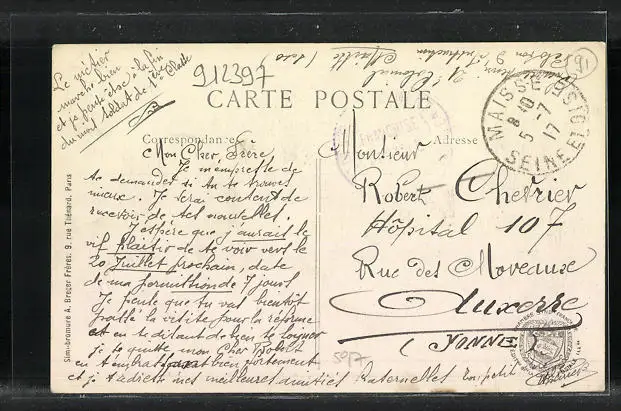 Le métier
marche bien
et je pense être à la fin
du mois soldat de 1ère Classe
912397
Maille
CARTE POSTALE
Correspondance
Adresse
MAISSE
8 10
5 -7
17
SEINE ET OISE
91
Mon Cher Frère
Je m'empresse de
te demander si tu te trouves
mieux. Je serai content de
recevoir de tes nouvelles.
J'espère que j'aurais le
vif plaisir de te voir vers le
20 Juillet prochain, date
de ma permission de 7 jours
Je pense que tu vas bientôt
passé la visite pour la réforme
et en te disant de bien te soigner
je te quitte mon Cher Robert
en t'embrassant bien fortement
et je t'adresse mes meilleures amitiés fraternelles
Monsieur
Robert Chevrier
Hôpital 107
Rue des Moreaux
Auxerre
(YONNE)
50 F
Sim-bromure A. Breger Frères, 9, rue Thénard, Paris